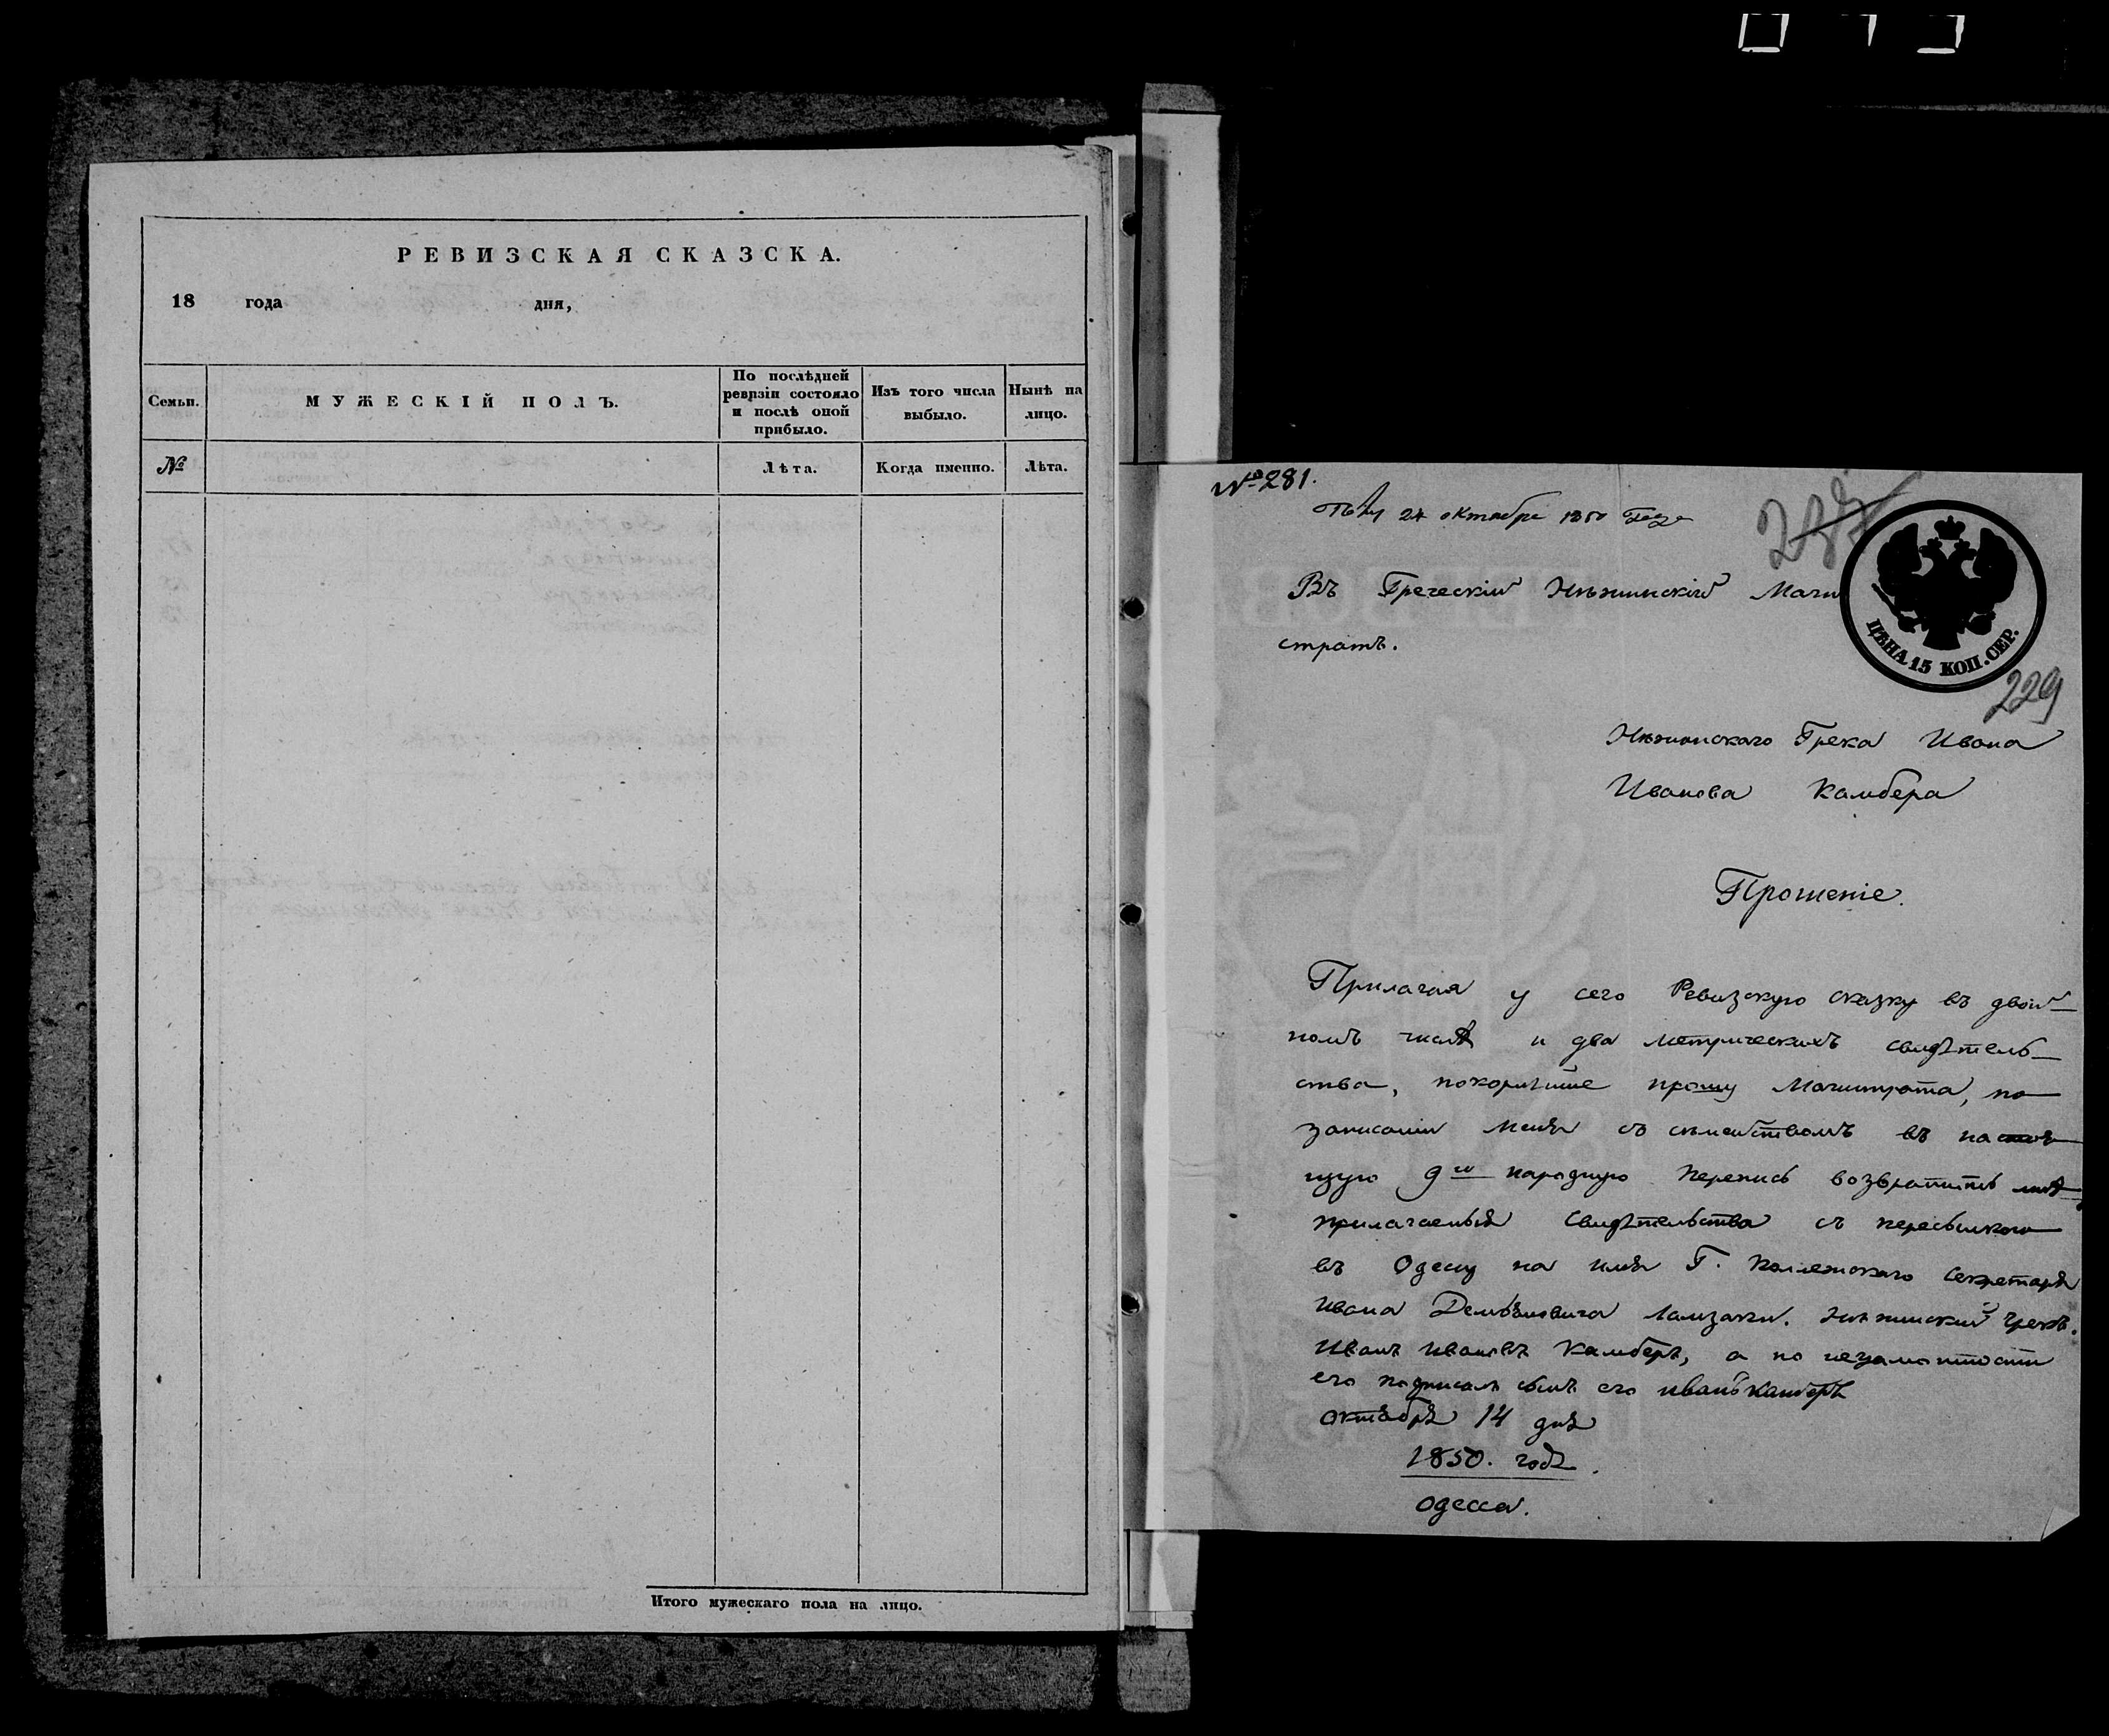 РЕВИЗСКАЯ СКАЗСКА.
18 года дня,
Семьи.
МУЖЕСКІЙ ПОЛЪ.
По послѣдней
ревизіи состояло
и послѣ оной
прибыло.
Изъ того числа
выбыло.
Нынѣ на
лицо.
№
Лѣта.
Когда именно.
Лѣта.
Итого мужескаго пола на лицо.
№ 281.
24 октября 1850 года
287
Въ Греческій Нѣжинскій Маги
стратъ.
ЦѢНА 15 КОП. СЕР.
229
Нѣжинскаго Грека Ивана
Иванова Камбера
Прошеніе.
Прилагая у сего Ревизскую сказку въ двой-
номъ числѣ и два метрическихъ свидѣтель-
ства, покорнѣйше прошу Магистрата, по
записаніи меня съ семействомъ въ настоя-
щую 9ю народную перепись возвратить мнѣ
прилагаемыя свидѣтельства съ пересылкою
въ Одессу на имя Г. Коллежскаго Секретаря
Ивана Демьяновича Ламзаки. Нѣжинскій грекъ.
Иванъ Ивановъ Камберъ, а по неграмотности
его подписалъ сынъ его иванъ камберъ
октября 14 дня
1850. года.
Одесса.